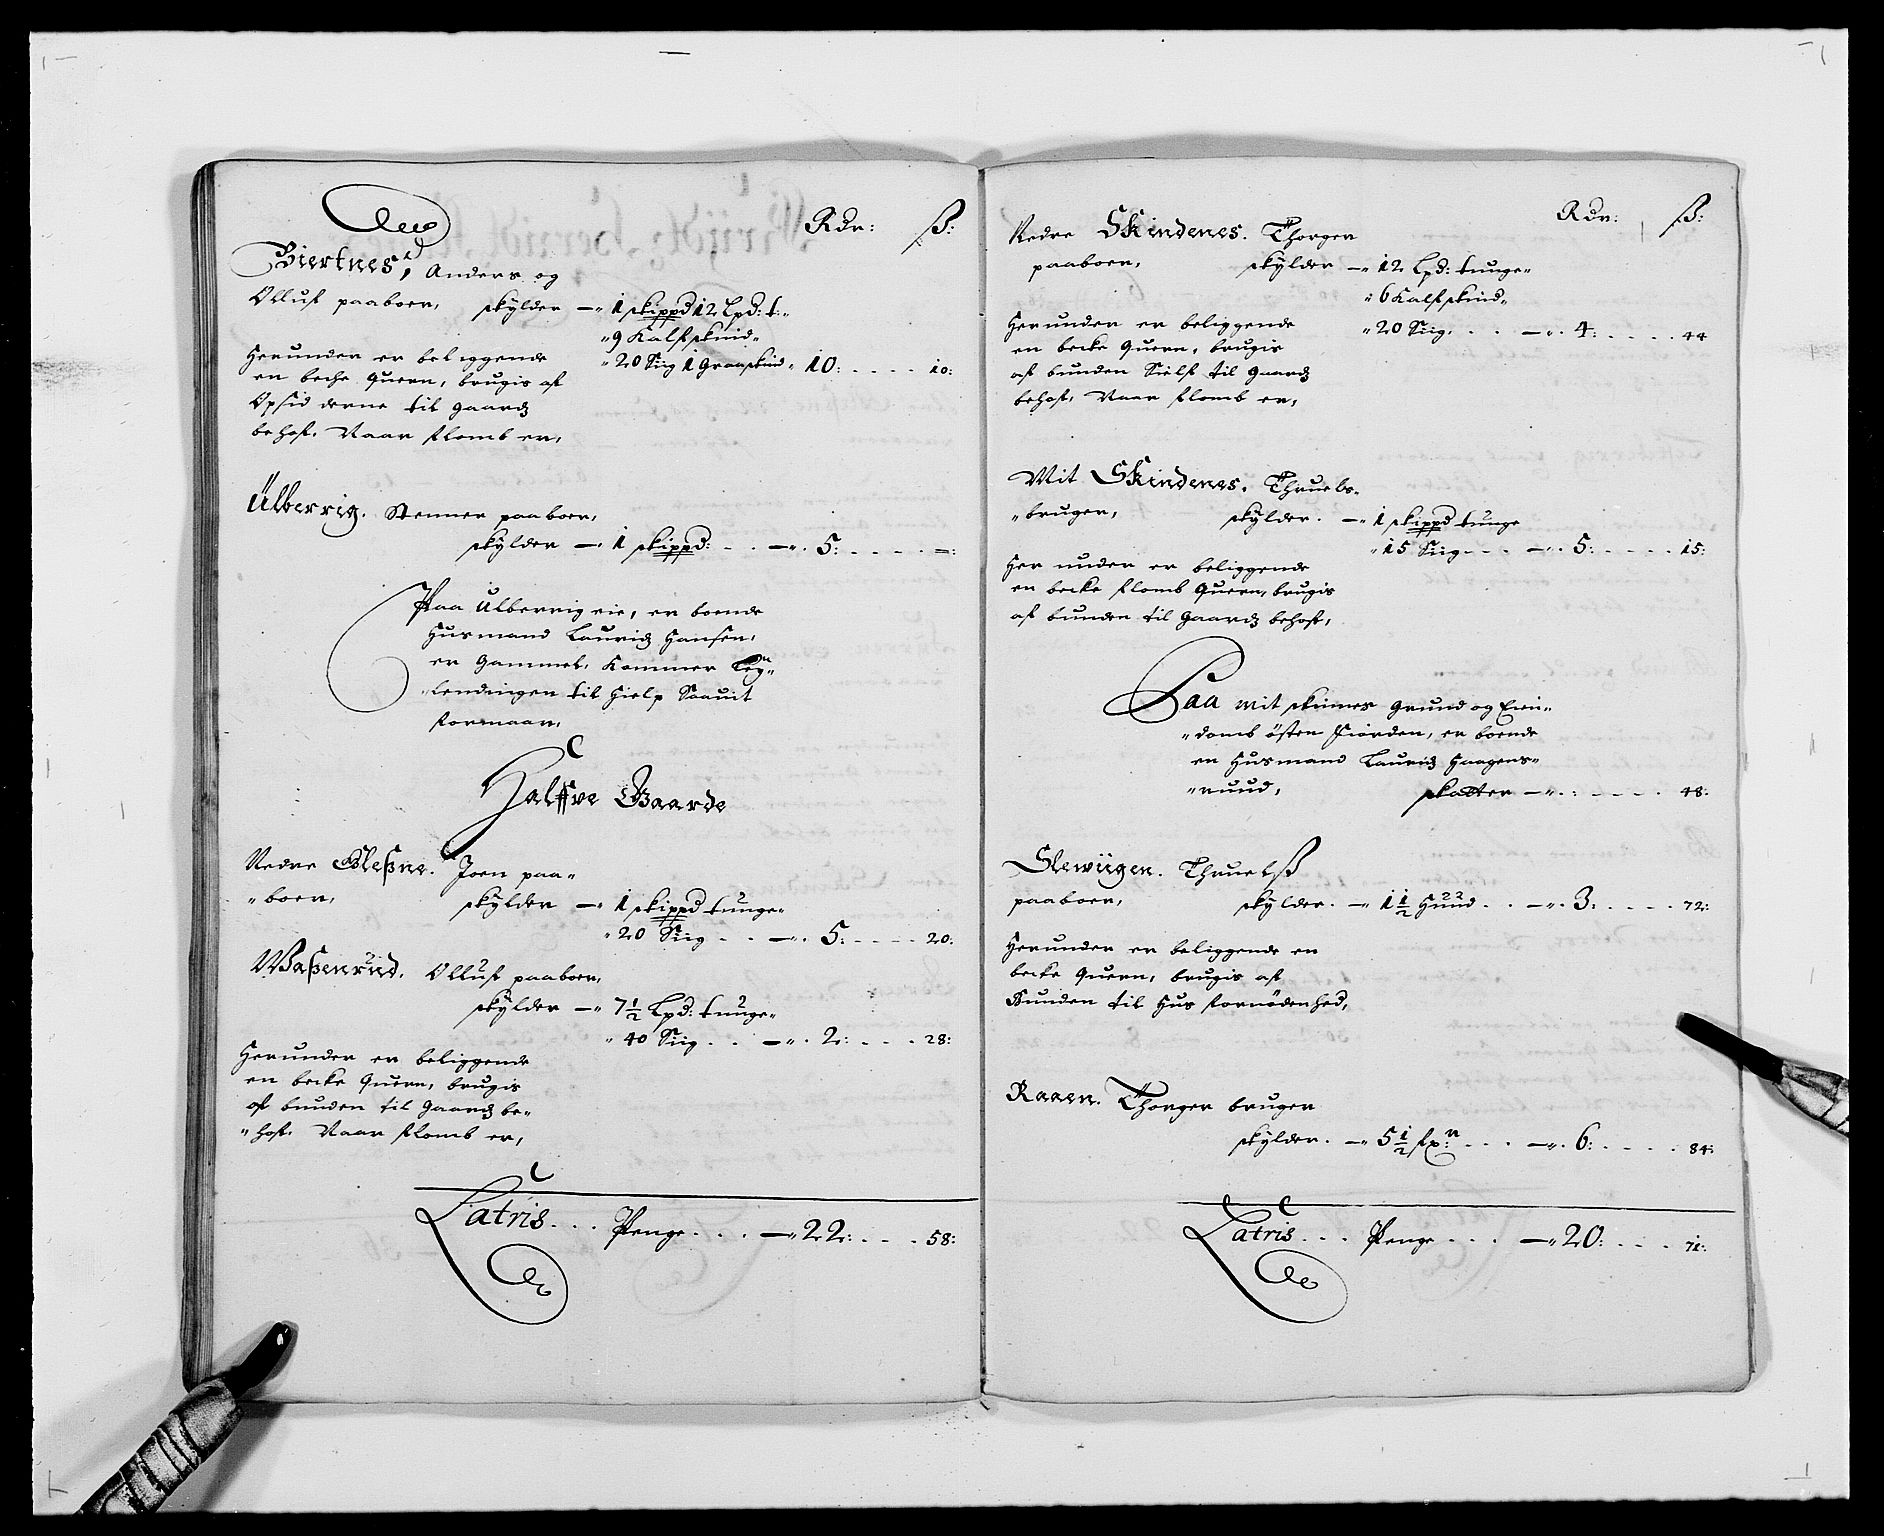 Rdr: ß:
Biertnes, Anders og
Olluf paaboer, skylder — 1 skippd 12 Lpd: t:
9 Kalfskind
Herunder er beliggende 20 Siig 1 Graaskind 10: 10:
en beche Quern, brugis af
Opsid derne til gaardz
behof. Naar flomb er,
Ülberrig. Stenner paaboer,
skylder — 1 skippd: — 5: —:
Paa Ulberrig eie, er boende
Husmand Lauridz Hansen,
er Gammel. Kommer
lendingen til Hielp Saauit
formaar,
Halffve Gaarde
Nedre Gleßne. Joen paa-
boer, skylder — 1 skippd tunge
20 Siig — 5: 20:
Waßenrud. Olluf paaboer,
skylder — 7½ Lpd: tunge
40 Siig — 2: 28:
Herunder er beliggende
en becke Quern, brugis
af bunden til Gaardz be-
hof. Naar flomb er,
Latris Penge — 22: 58:
Rdr: ß:
Nedre Skindenes. Thorger
paaboer, skylder — 12 Lpd: tunge
6 Kalfskind
Herunder er beliggende 20 Siig — 4: 44
en becke Quern, brugis
af bunden Sielf til Gaardz
behof. Naar flomb er,
Mit Skindenes. Thruels
bruger, skylder. — 1 skippd tunge
15 Siig — 5: 15:
Her under er beliggende
en becke flomb Quern, brugis
af bunden til Gaardz behof,
Paa mit skinnes Grund og Eien-
domb östen fiorden, er boende
en Husmand Lauridz Haagens-
ruud, skatter — : 48:
Slewiigen. Thruelß
paaboer, skylder. — 1½ Huud — 3: 72:
Herunder er beliggende en
becke Quern, brugis af
Bunden til Hus fornödenhed,
Raaen. Thorger bruger
skylder. — 5½ — 6: 84:
Latris Penge — 20: 71: